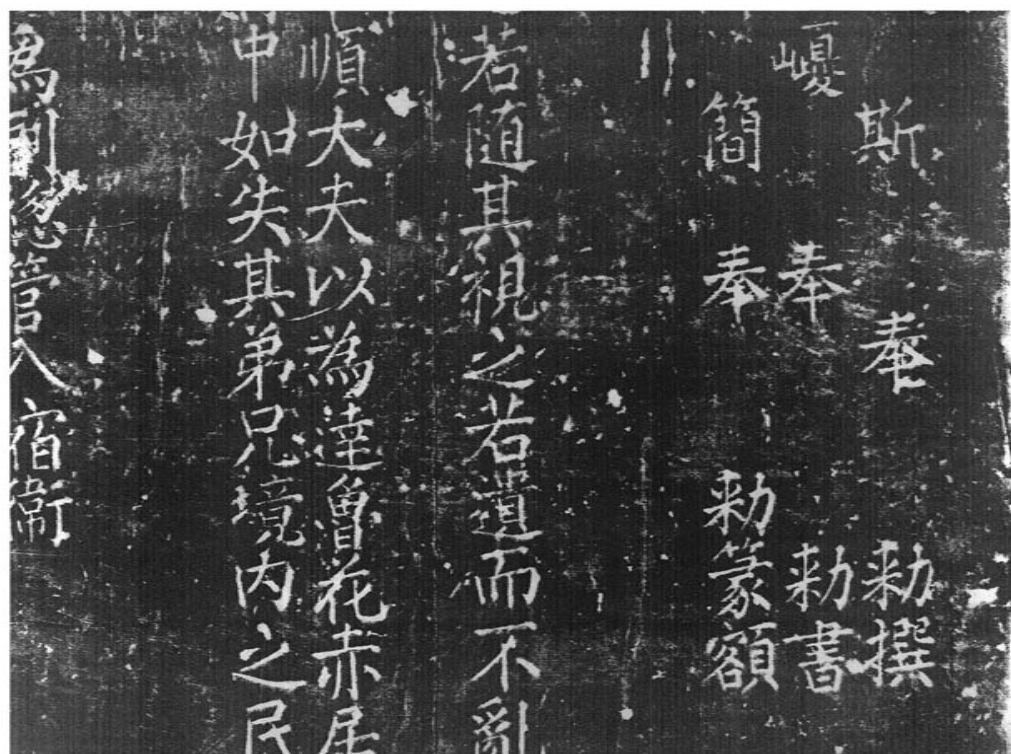 斯奉勑撰
巎奉勑書
簡奉勑篆額
若随其視之若遺而不亂
順大夫以為達魯花赤居
中如失其弟兄境内之民
為副總管入宿衛